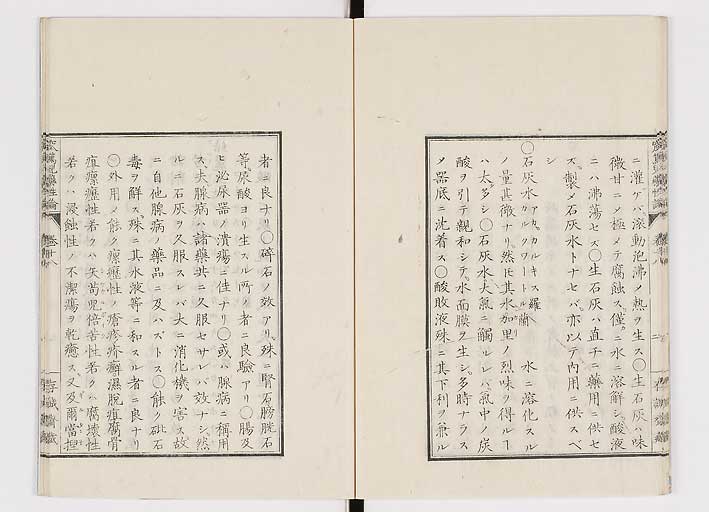 ニ灌ゲバ滾動泡沸ノ熱ヲ生ス〇生石灰ハ味
微甘ニ〆極メテ腐蝕ス、僅ニ水ニ溶解シ酸液
ニハ沸蕩セズ〇生石灰ハ直チニ藥用ニ供セ
ズ、製メ石灰水トナセバ、亦以テ内用ニ供スベ
シ
〇石灰水 アカ、カルキス羅 カルクワートル蘭 水ニ溶化スル
ノ量甚微ナリ然𪜈其水加里ノ烈味ヲ得ルヿ
ハ太多シ〇石灰水大氣ニ觸ルレバ氣中ノ炭
酸ヲ引テ親和シテ水面膜ヲ生シ、多時ナラス
〆器底ニ沈着ス〇酸敗液殊ニ其下利ヲ兼ル
者ニ良ナリ〇碎石ノ效アリ、殊ニ腎石膀胱石
等尿酸ヨリ生スル所ノ者ニ良驗アリ〇腸及
ヒ泌尿器ノ潰瘍ニ佳ナリ〇或ハ腺病ニ稱用
ス、夫腺病ハ諸藥共ニ久服セサレバ效ナシ、然
ルニ石灰ヲ久服スレバ大ニ消化機ヲ害ス故
ニ自他腺病ノ藥品ニ及ハズトス〇能ク砒石
毒ヲ解ス殊ニ其水液等ニ和スル者ニ良ナリ
〇外用メ能ク瘰癧性ノ瘡疥癬濕脱疽腐骨
疽瘰癧性若クハ矢苟児倍苦性若クハ腐壊性
若クハ浸蝕性ノ不潔瘍ヲ乾癒ス、又及爾當捏